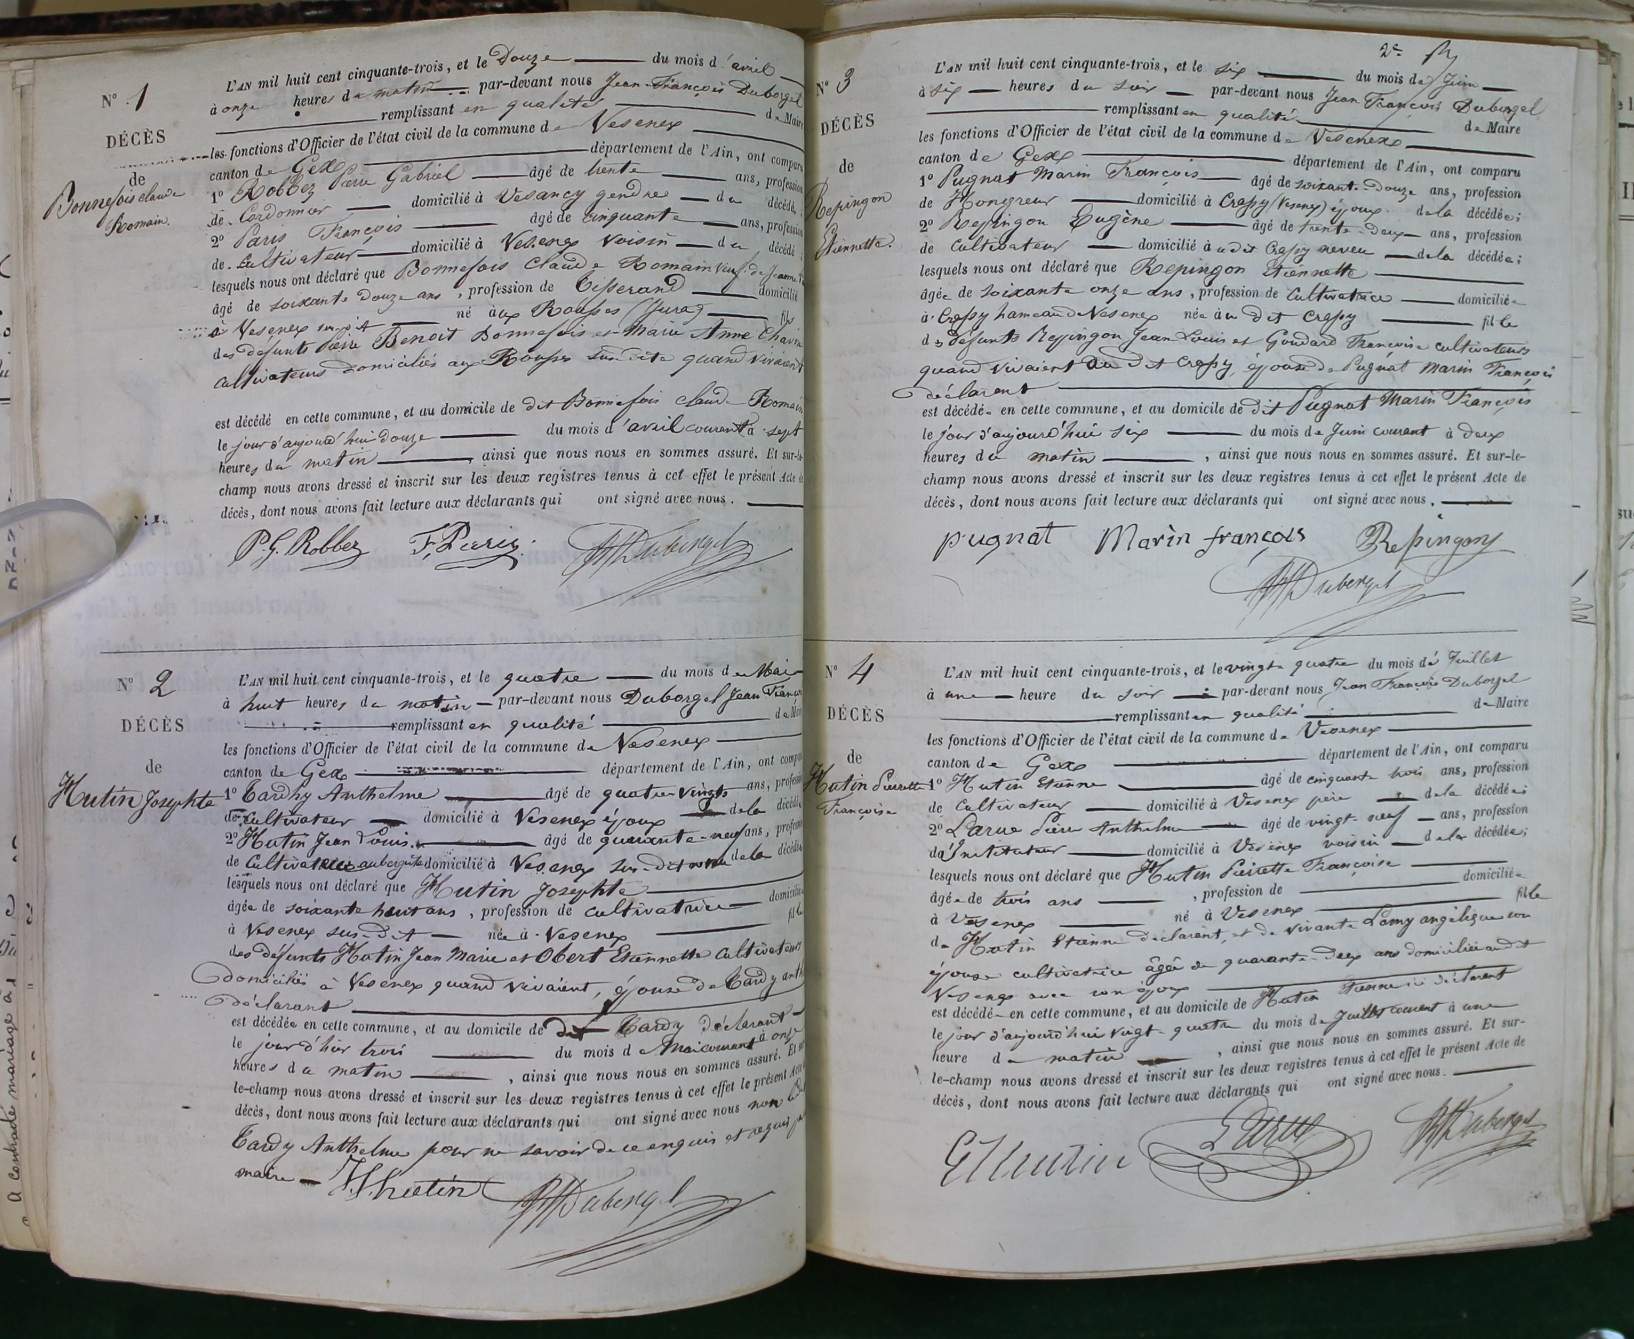 N° 1
DÉCÈS
de
Bonnefois claude
Romain.
L'AN mil huit cent cinquante-trois, et le Douze du mois d'avril
à onze heures du matin par-devant nous Jean-François Duborgel
remplissant en qualité de Maire
les fonctions d'Officier de l'état civil de la commune de Vesenex
canton de Gex département de l'Ain, ont comparu
1° Robbez Pierre Gabriel âgé de trente ans, profession
de Cordonnier domicilié à Vesancy gendre du décédé;
2° Paris François âgé de cinquante ans, profession
de Cultivateur domicilié à Vesenex voisin du décédé;
lesquels nous ont déclaré que Bonnefois Claude Romain veuf de Jeanne
âgé de soixante douze ans, profession de Tisserand domicilié
à Vesenex né aux Rousses (Jura) fils
des défunts Pierre Benoit Bonnefois et Marie Anne Chavin
cultivateurs domiciliés aux Rousses susdite quand vivaient
est décédé en cette commune, et au domicile de dit Bonnefois claude Romain
le jour d'aujourd'hui douze du mois d'avril courant à sept
heures du matin, ainsi que nous nous en sommes assuré. Et sur-le-
champ nous avons dressé et inscrit sur les deux registres tenus à cet effet le présent Acte de
décès, dont nous avons fait lecture aux déclarants qui ont signé avec nous.
P. G. Robbez F. Paris. Duborgel
N° 2
DÉCÈS
de
Hutin Josephte
L'AN mil huit cent cinquante-trois, et le quatre du mois de Mai
à huit heures du matin par-devant nous Duborgel Jean François
remplissant en qualité de Maire
les fonctions d'Officier de l'état civil de la commune de Vesenex
canton de Gex département de l'Ain, ont comparu
1° Tardy Anthelme âgé de quatre vingts ans, profession
de cultivateur domicilié à Vesenex époux de la décédée
2° Hutin Jean Louis âgé de quarante-neuf ans, profession
de Cultivateur aubergiste domicilié à Vesenex sus-dit de la décédée
lesquels nous ont déclaré que Hutin Josephte
âgée de soixante huit ans, profession de cultivatrice domiciliée
à Vesenex sus-dit née à Vesenex fille
des défunts Hutin Jean Marie et Obert Etiennette Cultivateurs
domiciliés à Vesenex quand vivaient, épouse de Tardy anth
déclarant
est décédée en cette commune, et au domicile de dit Tardy déclarant
le jour d'hier trois du mois de Mai courant à onze
heures du matin, ainsi que nous nous en sommes assuré. Et sur-
le-champ nous avons dressé et inscrit sur les deux registres tenus à cet effet le présent Acte
décès, dont nous avons fait lecture aux déclarants qui ont signé avec nous non le
Tardy Anthelme pour ne savoir de ce enquis et requis par
maire J. L. hutin Duborgel
2e
N° 3
DÉCÈS
de
Repingon
Etiennette.
L'AN mil huit cent cinquante-trois, et le six du mois de Juin
à six heures du soir par-devant nous Jean François Duborgel
remplissant en qualité de Maire
les fonctions d'Officier de l'état civil de la commune de Vesenex
canton de Gex département de l'Ain, ont comparu
1° Pugnat Marin François âgé de soixante douze ans, profession
de Hongreur domicilié à Crassy (Vesenex) époux de la décédée;
2° Repingon Eugène âgé de trente-deux ans, profession
de Cultivateur domicilié à udit Crassy neveu de la décédée;
lesquels nous ont déclaré que Repingon Etiennette
âgée de soixante onze ans, profession de Cultivatrice domiciliée
à Crassy hameau de Vesenex née à u dit Crassy fille
des défunts Repingon Jean Louis et Goudard Françoise cultivateurs
quand vivaient au dit Crassy, épouse de Pugnat Marin François
déclarant
est décédée en cette commune, et au domicile de dit Pugnat Marin François
le jour d'aujourd'hui six du mois de Juin courant à deux
heures du matin, ainsi que nous nous en sommes assuré. Et sur-le-
champ nous avons dressé et inscrit sur les deux registres tenus à cet effet le présent Acte de
décès, dont nous avons fait lecture aux déclarants qui ont signé avec nous.
pugnat Marin françois Repingon
Duborgel
N° 4
DÉCÈS
de
Hutin Pierrette
Françoise
L'AN mil huit cent cinquante-trois, et le vingt quatre du mois de Juillet
à une heure du soir par-devant nous Jean François Duborgel
remplissant en qualité de Maire
les fonctions d'Officier de l'état civil de la commune de Vesenex
canton de Gex département de l'Ain, ont comparu
1° Hutin Etienne âgé de cinquante trois ans, profession
de Cultivateur domicilié à Vesenex père de la décédée;
2° Larue Pierre Anthelme âgé de vingt-neuf ans, profession
d'Instituteur domicilié à Vesenex voisin de la décédée;
lesquels nous ont déclaré que Hutin Pierrette Françoise
âgée de trois ans, profession de domiciliée
à Vesenex né à Vesenex fille
de Hutin Etienne déclarant, et de vivante Lamy angélique son
épouse cultivatrice âgée de quarante-deux ans domiciliée audit
Vesenex avec son époux
est décédée en cette commune, et au domicile de Hutin Etienne déclarant
le jour d'aujourd'hui vingt-quatre du mois de Juillet courant à une
heure du matin, ainsi que nous nous en sommes assuré. Et sur-
le-champ nous avons dressé et inscrit sur les deux registres tenus à cet effet le présent Acte de
décès, dont nous avons fait lecture aux déclarants qui ont signé avec nous.
E Hutin Larue Duborgel